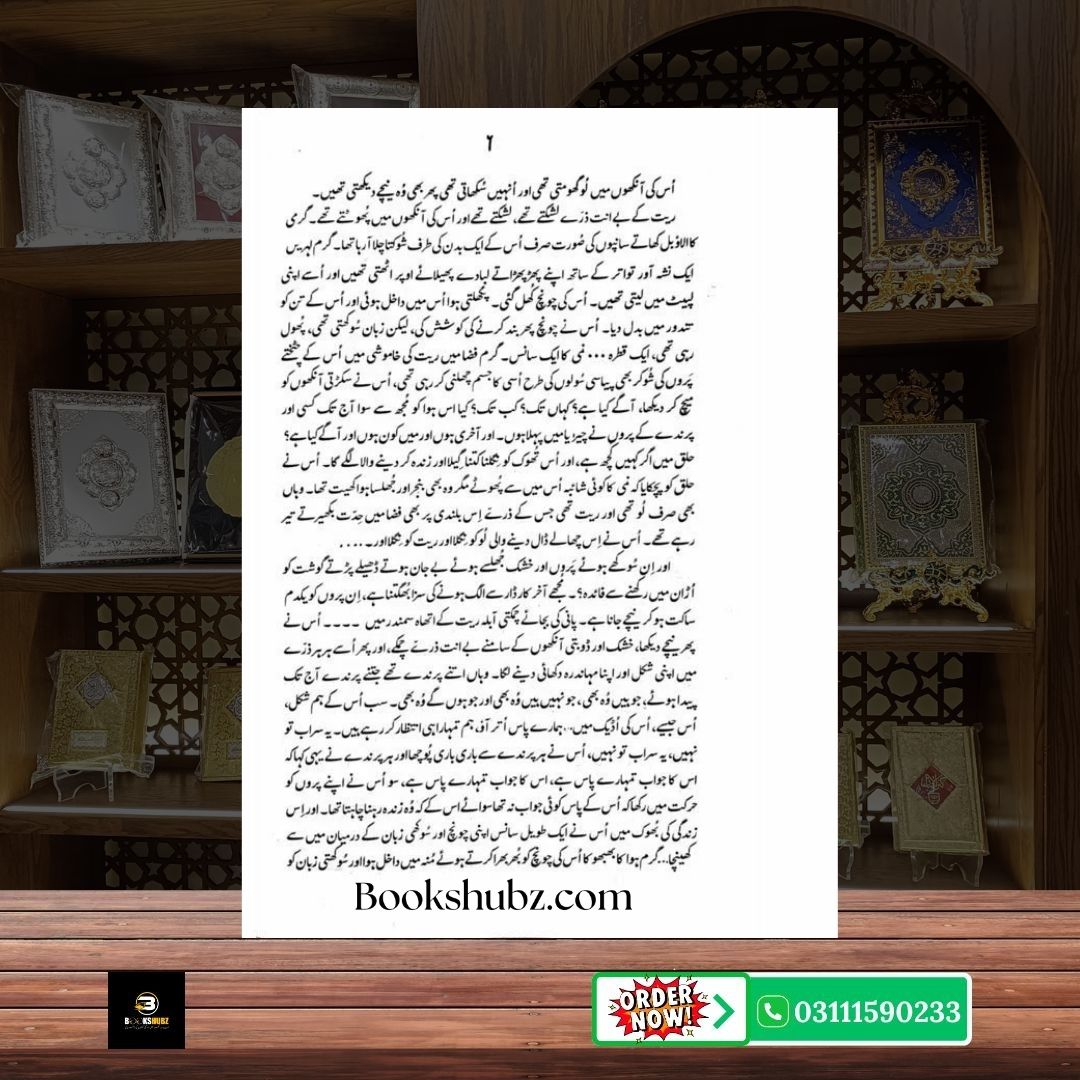 ۶
اُس کی آنکھوں میں لُو گھومتی تھی اور اُنہیں سُکھاتی تھی پھر بھی وُہ نیچے دیکھتی تھیں۔
ریت کے بے انت ذرّے لشکتے تھے، لشکتے تھے اور اُس کی آنکھوں میں پُھوٹتے تھے۔ گرمی
کا الاؤ بَل کھاتے سانپوں کی صُورت صرف اُس کے ایک بدن کی طرف شُوکتا چلا آ رہا تھا۔ گرم لہریں
ایک نشہ آور تواتر کے ساتھ اپنے پھڑپھڑاتے لبادے پھیلائے اوپر اٹھتی تھیں اور اُسے اپنی
لپیٹ میں لیتی تھیں۔ اُس کی چونچ کُھل گئی۔ پگھلتی ہوا اُس میں داخل ہوئی اور اُس کے تن کو
تندور میں بدل دیا۔ اُس نے چونچ پھر بند کرنے کی کوشش کی، لیکن زبان سُوکھتی تھی، پُھول
رہی تھی، ایک قطرہ ... نمی کا ایک سانس۔ گرم فضا میں ریت کی خاموشی میں اُس کے چٹختے
پَروں کی شُوکر بھی پیاسی سُولوں کی طرح اُسی کا جسم چھلنی کر رہی تھی، اُس نے سکڑتی آنکھوں کو
میچ کر دیکھا، آگے کیا ہے؟ کہاں تک؟ کب تک؟ کیا اس ہوا کو مُجھ سے سوا آج تک کسی اور
پرندے کے پروں نے چیرا یا میں پہلا ہوں۔ اور آخری ہوں اور میں کون ہوں اور آگے کیا ہے؟
حلق میں اگر کہیں کچھ ہے، اور اُس تھوک کو نِگلنا کتنا گیلا اور زندہ کر دینے والا لگے گا۔ اُس نے
حلق کو پچکایا کہ نمی کا کوئی شائبہ اُس میں سے پُھوٹے مگر وہ بھی بنجر اور جُھلسا ہوا کھیت تھا۔ وہاں
بھی صرف لُو تھی اور ریت تھی جس کے ذرّے اِس بلندی پر بھی فضا میں حِدّت بکھیرتے تیر
رہے تھے۔ اُس نے اِس چھالے ڈال دینے والی لُو کو نِگلا اور ریت کو نِگلا اور۔....
اور اِن سُوکھے ہوئے پَروں اور خشک جُھلسے ہوئے بے جان ہوتے ڈھیلے پڑتے گوشت کو
اُڑان میں رکھنے سے فائدہ؟۔ مُجھے آخر کار ڈار سے الگ ہونے کی سزا بُھگتنا ہے، اِن پروں کو یکدم
ساکت ہو کر نیچے جانا ہے۔ پانی کی بجائے چمکتی آبلہ ریت کے اتھاہ سمندر میں .... اُس نے
پھر نیچے دیکھا، خشک اور ڈوبتی آنکھوں کے سامنے بے انت ذرّے چمکے، اور پھر اُسے ہر ہر ذرّے
میں اپنی شکل اور اپنا مہاندرہ دکھائی دینے لگا۔ وہاں اتنے پرندے تھے جتنے پرندے آج تک
پیدا ہوئے، جو ہیں وُہ بھی، جو نہیں ہیں وُہ بھی اور جو ہوں گے وُہ بھی۔ سب اُس کے ہم شکل،
اُس جیسے، اُس کی اُڈیک میں... ہمارے پاس اُتر آؤ، ہم تمہارا ہی انتظار کر رہے ہیں۔ یہ سراب تو
نہیں، یہ سراب تو نہیں، اُس نے ہر پرندے سے باری باری پُوچھا اور ہر پرندے نے یہی کہا کہ
اس کا جواب تمہارے پاس ہے، اس کا جواب تمہارے پاس ہے، سو اُس نے اپنے پروں کو
حرکت میں رکھا کہ اُس کے پاس کوئی جواب نہ تھا سوائے اس کے کہ وُہ زندہ رہنا چاہتا تھا۔ اور اِس
زندگی کی بُھوک میں اُس نے ایک طویل سانس اپنی چونچ اور سُوکھی زبان کے درمیان میں سے
کھینچا... گرم ہوا کا بھبھوکا اُس کی چونچ کو بُھربُھرا کرتے ہوئے مُنہ میں داخل ہوا اور سُوکھتی زبان کو
Bookshubz.com
BOOKSHUBZ
ORDER NOW!
03111590233